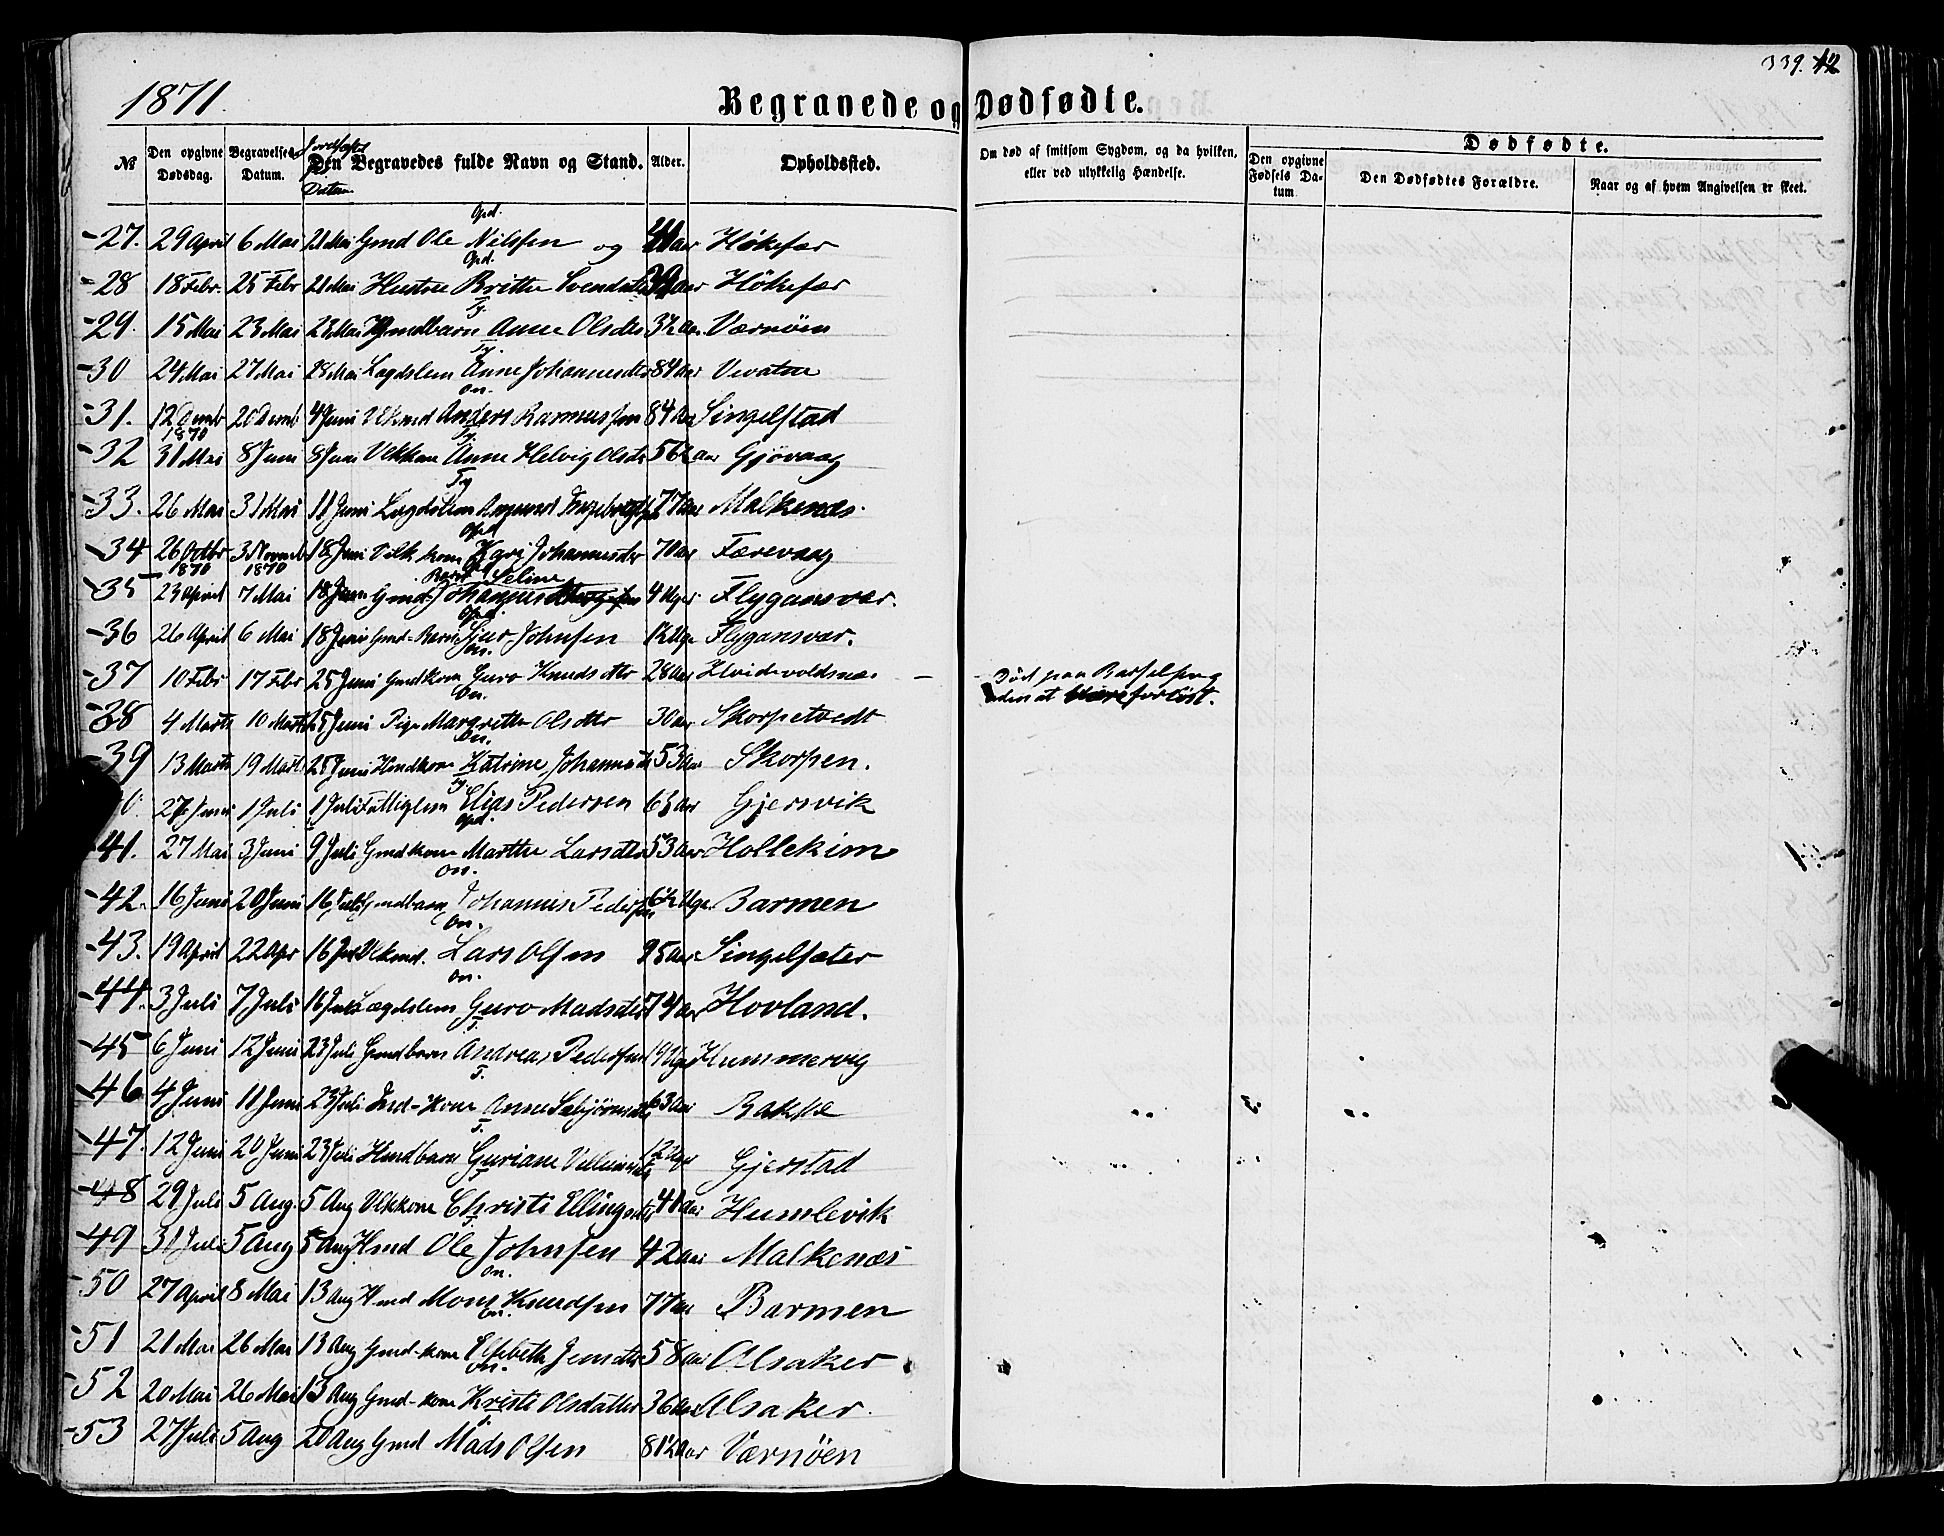 339. 42
1871.
Begravede og Dødfødte.
№
Den opgivne Dødsdag.
Begravelses- Datum.
Jordfæst. Datum
Den Begravedes fulde Navn og Stand.
Alder.
Opholdssted.
Om død af smitsom Sygdom, og da hvilken, eller ved ulykkelig Hændelse.
Dødfødte.
Den opgivne Fødsels Datum.
Den Dødfødtes Forældre.
Naar og af hvem Angivelsen er skeet.
Opd.
-27. 29 April 6 Mai 21 Mai Gmd Ole Nilssen og Aar Høkefær
Opd.
-28 18 Febr. 25 Febr 21 Mai Hustru Britha Svendsdtr Aar Høkefær
Ty.
-29. 15 Mai 23 Mai 23 Mai Hmdbarn Anne Olsdtr 3½ Aar. Værnöen
Ty.
-30 24 Mai 27 Mai 28 Mai Lægdslem Anne Johannesdtr 84 Aar Uvatne
On.
-31. 12 Decmb 1870 20 Decmb 4 Juni Vlkmd Anders Rasmussen 84 Aar Singelstad
Ty.
-32 31 Mai 8 Juni 8 Juni Vlkkone Anne Helvig Olsdtr 56½ Aar Gjøvaag
Ty
-33. 26 Mai 31 Mai 11 Juni Lægdslem Amund Ingebrigtsen 77 Aar Malkenæs.
Opd
-34 26 Octbr 1870 3 Novmb 1870 18 Juni Vilk kone Kari Johannesdtr 70 Aar Færevaag
Opd
Barn Seline
-35 23 April 7 Mai 18 Juni Gmd. Johannes 4 Uger Flygansvær.
Opd.
-36 26 April 6 Mai 18 Juni Gmd-Barn Sjur Johnsen 1½ Uge Flygansvær.
On.
-37 10 Febr 17 Febr 25 Juni Gmdkone Guro Knudsdtr 28 Aar Hvidevoldsnæs - Død paa Barselseng
uden at være forløst.
On.
-38 4 Marts 10 Marts 25 Juni Pige Margrethe Olsdtr 30 Aar Skorpetvedt
On.
-39 13 Marts 19 Marts 25 Juni Hmdkone Katrine Johannesdtr 53 Aar Skorpen.
Ty
0. 27 Juni 1 Juli 1 Juli Fattiglem Elias Pedersen 63 Aar Gjersvik
Opd.
-41. 27 Mai 3 Juni 9 Juli Gmdkone Marthe Larsdtr 53 Aar Hollekim
On.
-42. 16 Juni 20 Juni 16 Juli Gmdbarn Johannes Pedersen 6½ Uge. Barmen
On.
-43. 19 April 22 Apr 16 Juli Vlkmd. Lars Olsen 95 Aar Singelsæter
On.
-44. 3 Juli 7 Juli 16 Juli Lægdslem Guro Madsdtr 74 Aar Hovland.
T.
-45 6 Juni 12 Juni 23 Juli Gmdbarn Andreas Pedersen 14 Uger Hummervig
T.
-46 4 Juni 11 Juni 23 Juli Ind-kone Anne Sæbjørnsdtr 63 Aar Bakke
T.
-47. 12 Juni 20 Juni 23 Juli Hmdbarn Guriane Villumsdtr 12 Uger Gjerstad
-48 29 Juli 5 Aug. 5 Aug Vlkkone Christi Ellingsdtr 41 Aar Humlevik
T.
-49 31 Juli 5 Aug 5 Aug Hmd Ole Johnsen 42 Aar Malkenæs
On.
-50 27 April 8 Mai 13 Aug Hmd Mons Knudsen 77 Aar Barmen
On.
-51 21 Mai 26 Mai 13 Aug Gmd-kone Elsebeth Jensdtr 58 Aar Alsaker
On.
-52 20 Mai 26 Mai 13 Aug Gmd-kone Kristi Olsdatter 36 Aar Alsaker.
-53 27 Juli 5 Aug 20 Aug Gmd Mads Olsen 81½ Aar Værnöen